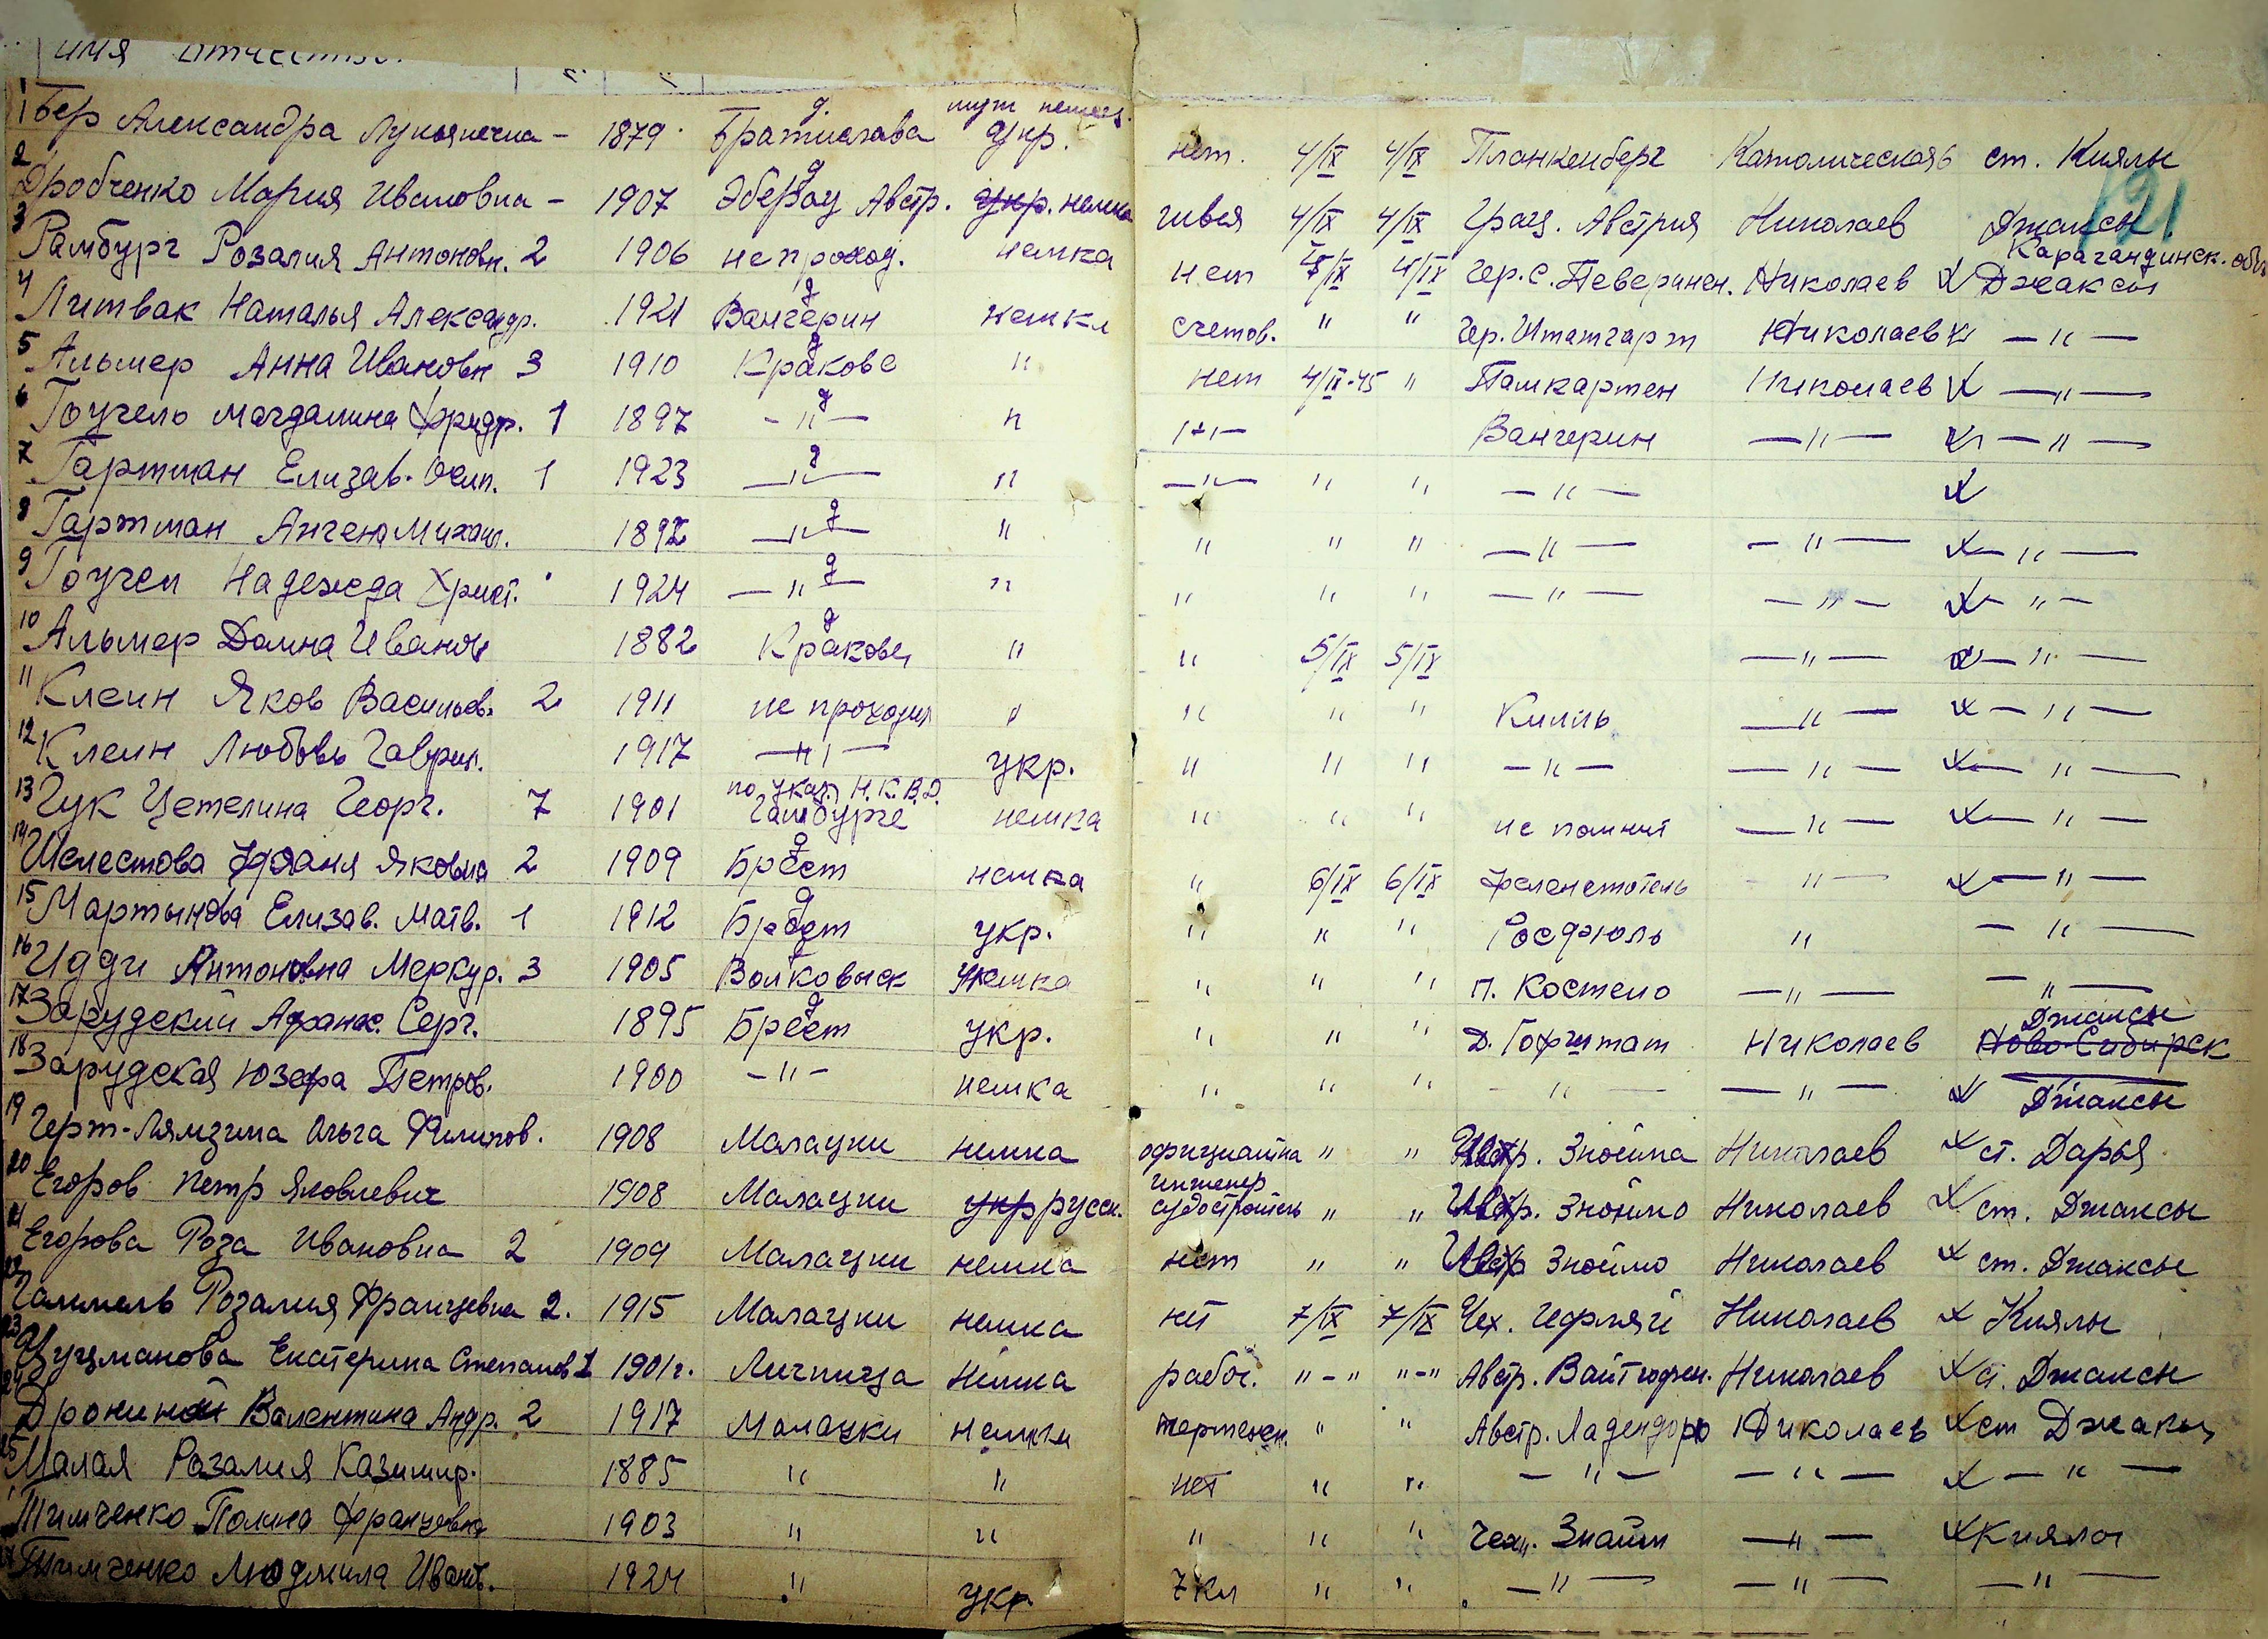 имя отчество
121
муж немец.
1 Бер Александра Лукьянечна - 1879 г. Братислава Укр. нет. 4/IX 4/IX Планкенберг Католическая 6 ст. Киялы
2 Дробченко Мария Ивановна - 1907 g Эберау Австр. укр. немка швея 4/IX 4/IX Грац. Австрия Николаев Джаксы
Карагандинск. обл
3 Рамбург Розалия Антоновн. 2 1906 не проход. немка нет 4/IX 4/IX Гер. с. Певеринен. Николаев X Джаксы
4 Литвак Наталья Александр. 1921 g Вангерин немка счетов. " " Гер. Штатгарт Николаев X — " —
5 Альмер Анна Ивановн 3 1910 g Кракове " нет 4/IX-45 " Памкартен Николаев X — " —
6 Гоучель Магдалина Фридр. 1 1897 — " — g " — " — Вангерин — " — X — " —
7 Гартман Елизав. Осип. 1 1923 — " — g " — " — " " — " — X
8 Гартман Ангена Михаил. 1892 — " — g " " " " — " — — " — X — " —
9 Гоучел Надежда Христ. 1924 — " — g " " " " — " — — " — X — " —
10 Альмер Домна Иванов 1882 g Кракове " " 5/IX 5/IX — " — X — " —
11 Клеин Яков Васильев. 2 1911 не проходил " " " " Киль — " — X — " —
12 Клеин Любовь Гаврил. 1917 — " — укр. " " " — " — — " — X — " —
по указ. Н.К.В.Д.
13 Гук Цетелина Георг. 7 1901 Гамбурге немка " " " не помнит — " — X — " —
14 Шелестова Яковна 2 1909 g Брест немка " 6/IX 6/IX — " — X — " —
15 Мартынова Елизав. Матв. 1 1912 g Брест укр. " " " Росфюль " — " —
16 Идди Антоновна Меркур. 3 1905 Волковыск немка " " " п. Костело — " — — " —
17 Зарудский Афанас. Серг. 1895 g Брест укр. " " " Д. Гофштат Николаев Ново-Сибирск Джаксы
18 Зарудская Юзефа Петров. 1900 — " — немка " " " — " — — " — X Джаксы
19 Герт-Лямзина Ольга Филипов. 1908 Малацки немка официантка " " Авст. Знойма Николаев X ст. Дарья
20 Егоров Петр Яковлевич 1908 Малацки укр русск. инженер судостроитель " " Австр. Зноймо Николаев X ст. Джаксы
21 Егорова Роза Ивановна 2 1909 Малацки немка нет " " Австр Зноймо Николаев X ст. Джаксы
22 Гаммель Розалия Францевна 2. 1915 Малацки немка нет 7/IX 7/IX Чех. Николаев X Киялы
23 Цуцманова Екатерина Степанов 1 1901 г. немка рабоч. " - " " - " Австр. Вайтгофен. Николаев X ст. Джаксы
24 Дронина Валентина Андр. 2 1917 Малацки немка чертежн. " " Австр. Ладендорф Николаев X ст Джаксы
25 Малая Розалия Казимир. 1885 " " нет " " — " — — " — X — " —
Тимченко Полина Францевна 1903 " " " " " Чех. Знайм — " — X Киялы
Тимченко Людмила Иванов. 1924 " укр. 7 кл " " — " — — " — — " —